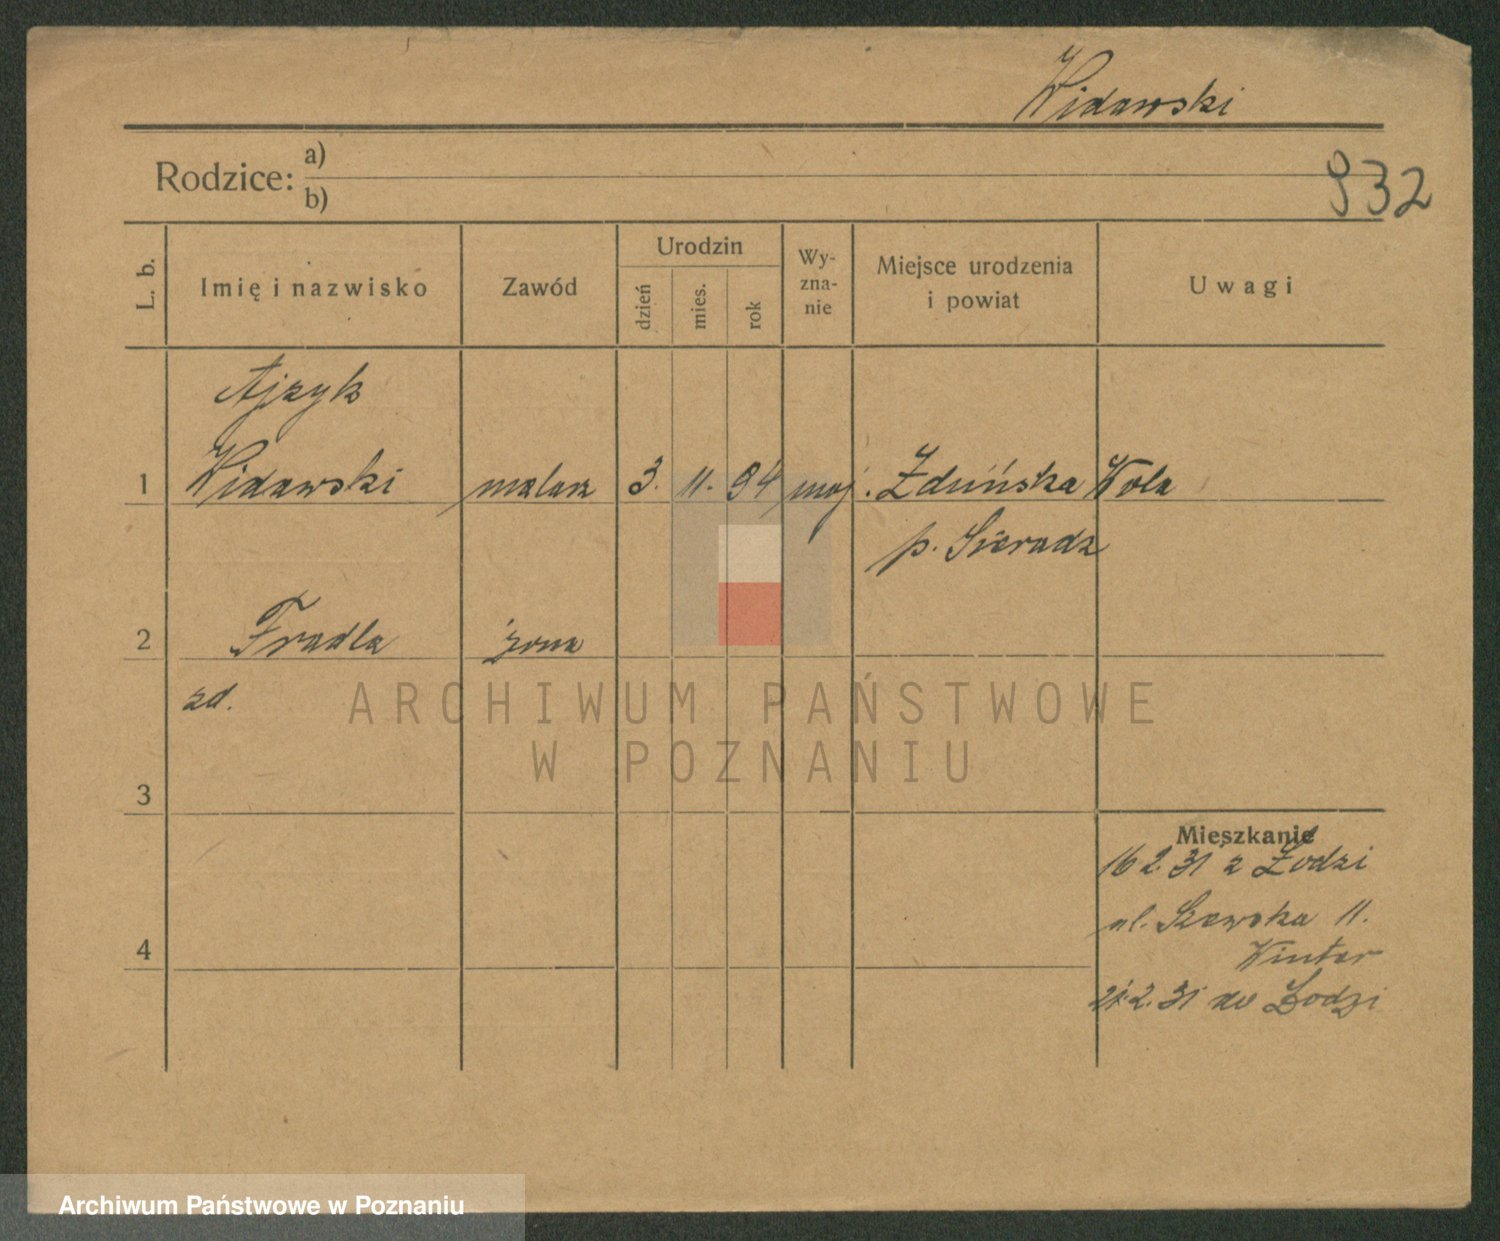 Widawski
Rodzice: a)
b)
932
L. b.
Imię i nazwisko
Zawód
Urodzin
dzień
mies.
rok
Wy-
zna-
nie
Miejsce urodzenia
i powiat
Uwagi
Ajzyk
1 Widawski malarz 3. 11. 94 moj. Zduńska Wola
p. Sieradz
2 Fradla żona
zd.
ARCHIWUM PAŃSTWOWE
W POZNANIU
3
Mieszkanie
16 2. 31 z Łodzi
ul. Szewska 11.
4
Winter
21.2. 31 do Łodzi
Archiwum Państwowe w Poznaniu